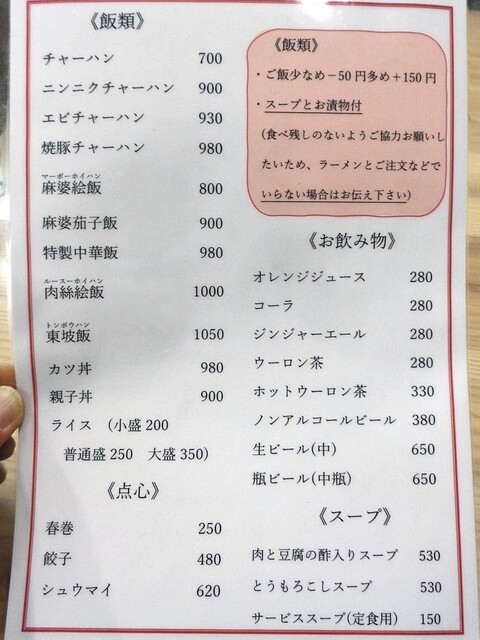 《飯類》
チャーハン 700
ニンニクチャーハン 900
エビチャーハン 930
焼豚チャーハン 980
マーボーホイハン
麻婆絵飯 800
麻婆茄子飯 900
特製中華飯 980
ルースーホイハン
肉絲絵飯 1000
トンポウハン
東坡飯 1050
カツ丼 980
親子丼 900
ライス (小盛 200
普通盛 250 大盛 350)
《点心》
春巻 250
餃子 480
シュウマイ 620
《飯類》
・ご飯少なめ－50円多め＋150円
・スープとお漬物付
(食べ残しのないようご協力お願いし
たいため、ラーメンとご注文などで
いらない場合はお伝え下さい)
《お飲み物》
オレンジジュース 280
コーラ 280
ジンジャーエール 280
ウーロン茶 280
ホットウーロン茶 330
ノンアルコールビール 380
生ビール(中) 650
瓶ビール(中瓶) 650
《スープ》
肉と豆腐の酢入りスープ 530
とうもろこしスープ 530
サービススープ(定食用) 150